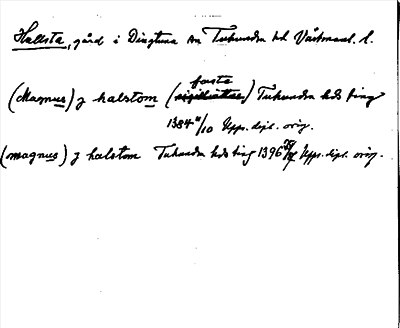 Hallsta, gård i Dingtuna sn Tuhundra hd Västmanl. l.
faste
(Magnus) j halstom (vigiliatus) Tuhundra hds ting
1384 4/10 Upps. dipl. orig.
(magnus) j halstom Tuhundra hds ting 1396 Upps. dipl. orig.